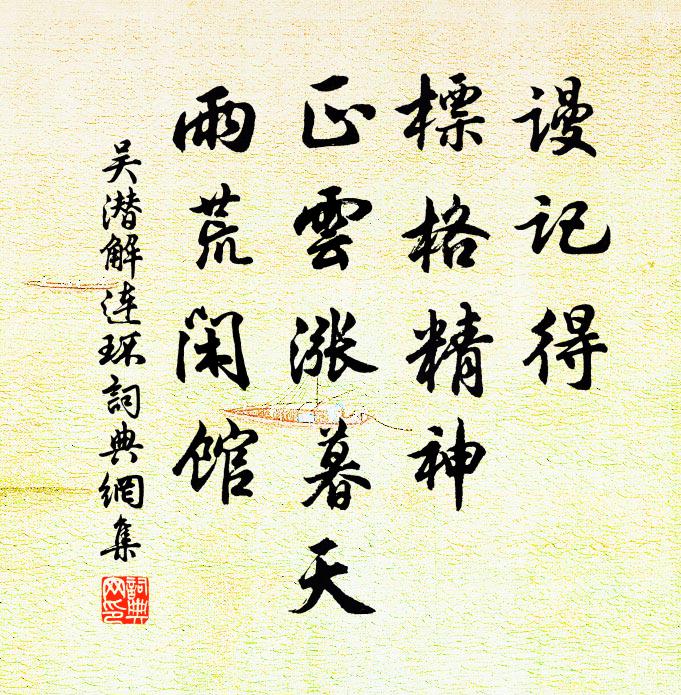 谩记得
標格精神
正雲漲暮天
雨荒闲馆
吴潜解连环詞典網集
詞典
网印